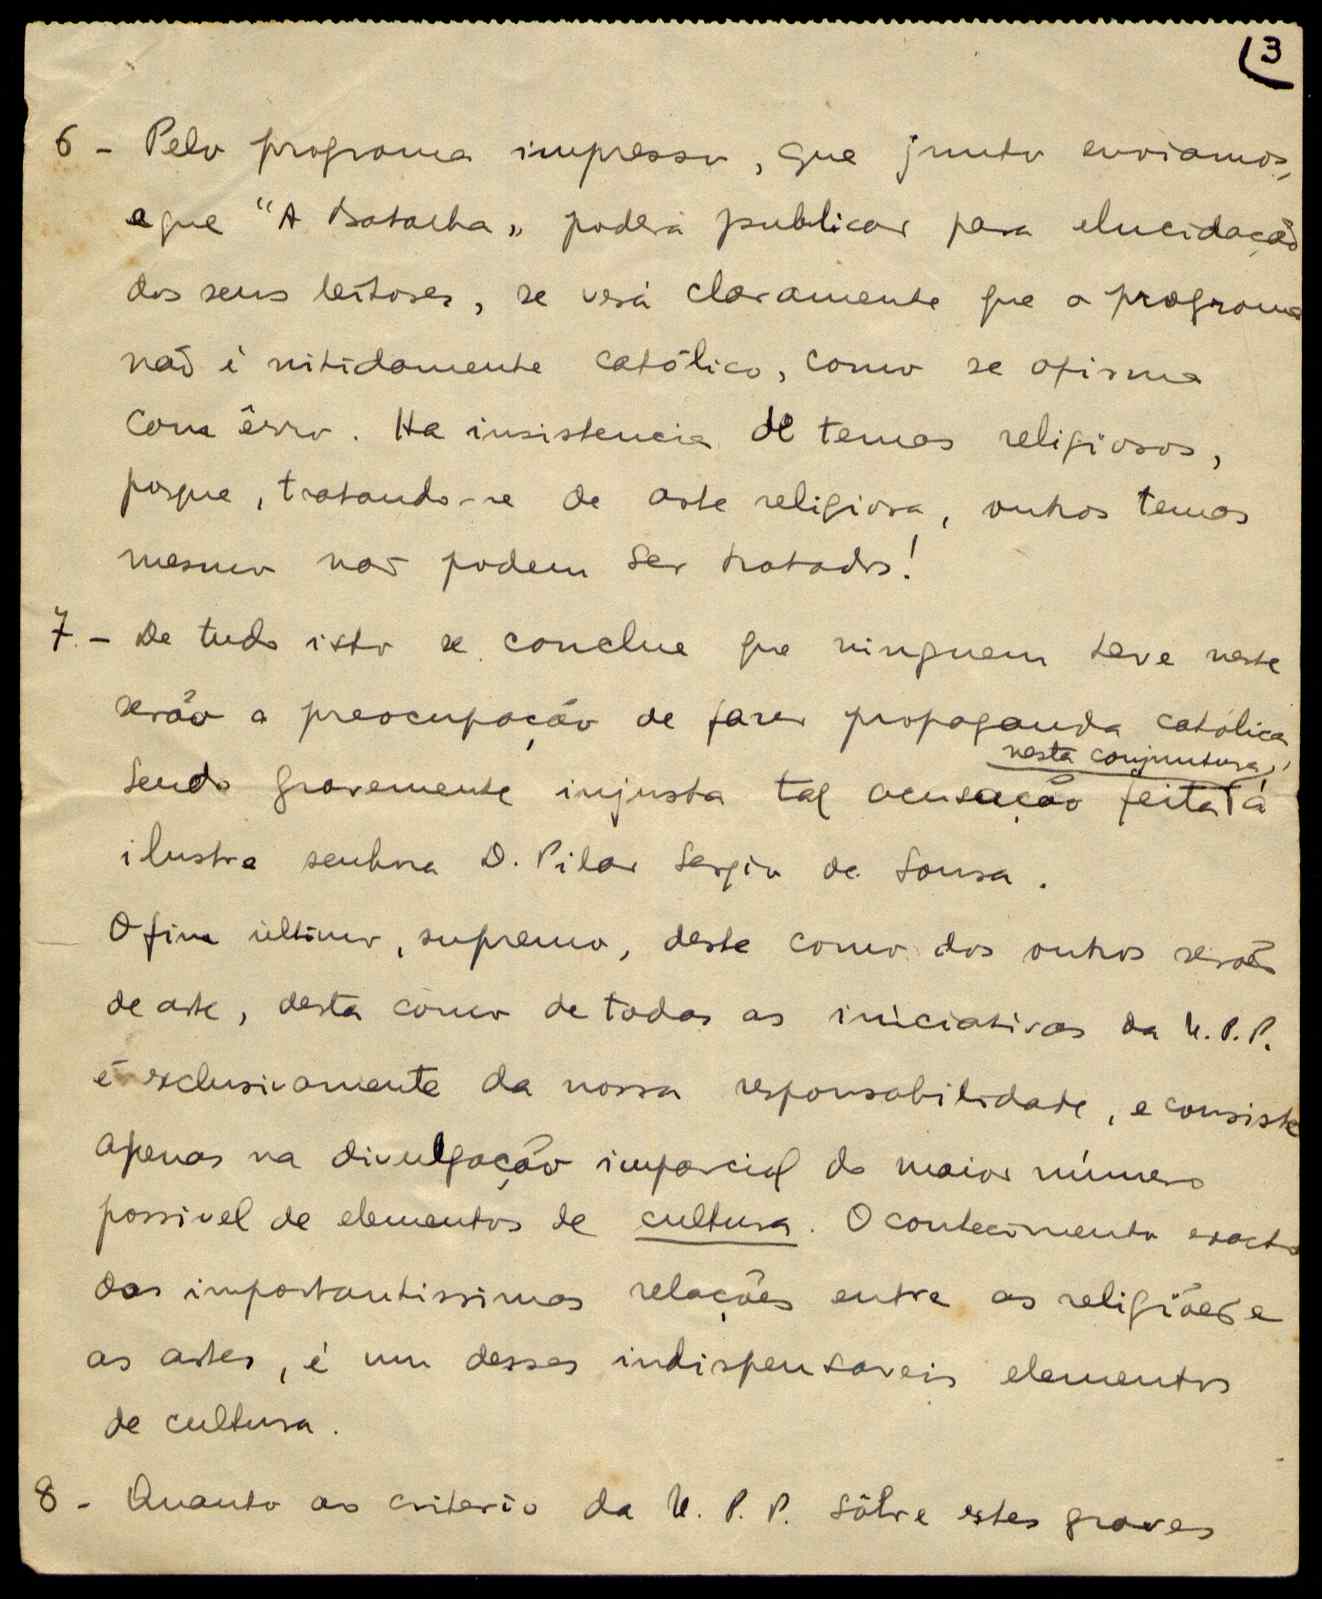 3
6 - Pelo programa impresso, que junto enviamos,
e que "A Batalha" poderá publicar para elucidação
dos seus leitores, se verá claramente que o programa
não é nitidamente católico, como se afirma
com êrro. Ha insistencia de temas religiosos,
porque, tratando-se de arte religiosa, outros temas
mesmo não podem ser tratados!
7. - De tudo isto se conclue que ninguem teve neste
serão a preocupação de fazer propaganda católica,
nesta conjuntura,
sendo gravemente injusta tal acusação feita à
ilustre senhora D. Pilar Sergio de Sousa.
O fim último, supremo, deste como dos outros serões
de arte, desta como de todas as iniciativas da U. P. P.
é exclusivamente da nossa responsabilidade, e consiste
apenas na divulgação imparcial do maior número
possivel de elementos de cultura. O contecimento exacto
das importantissimas relações entre as religiões e
as artes, é um desses indispensaveis elementos
de cultura.
8 - Quanto ao criterio da U. P. P. sôbre estes graves